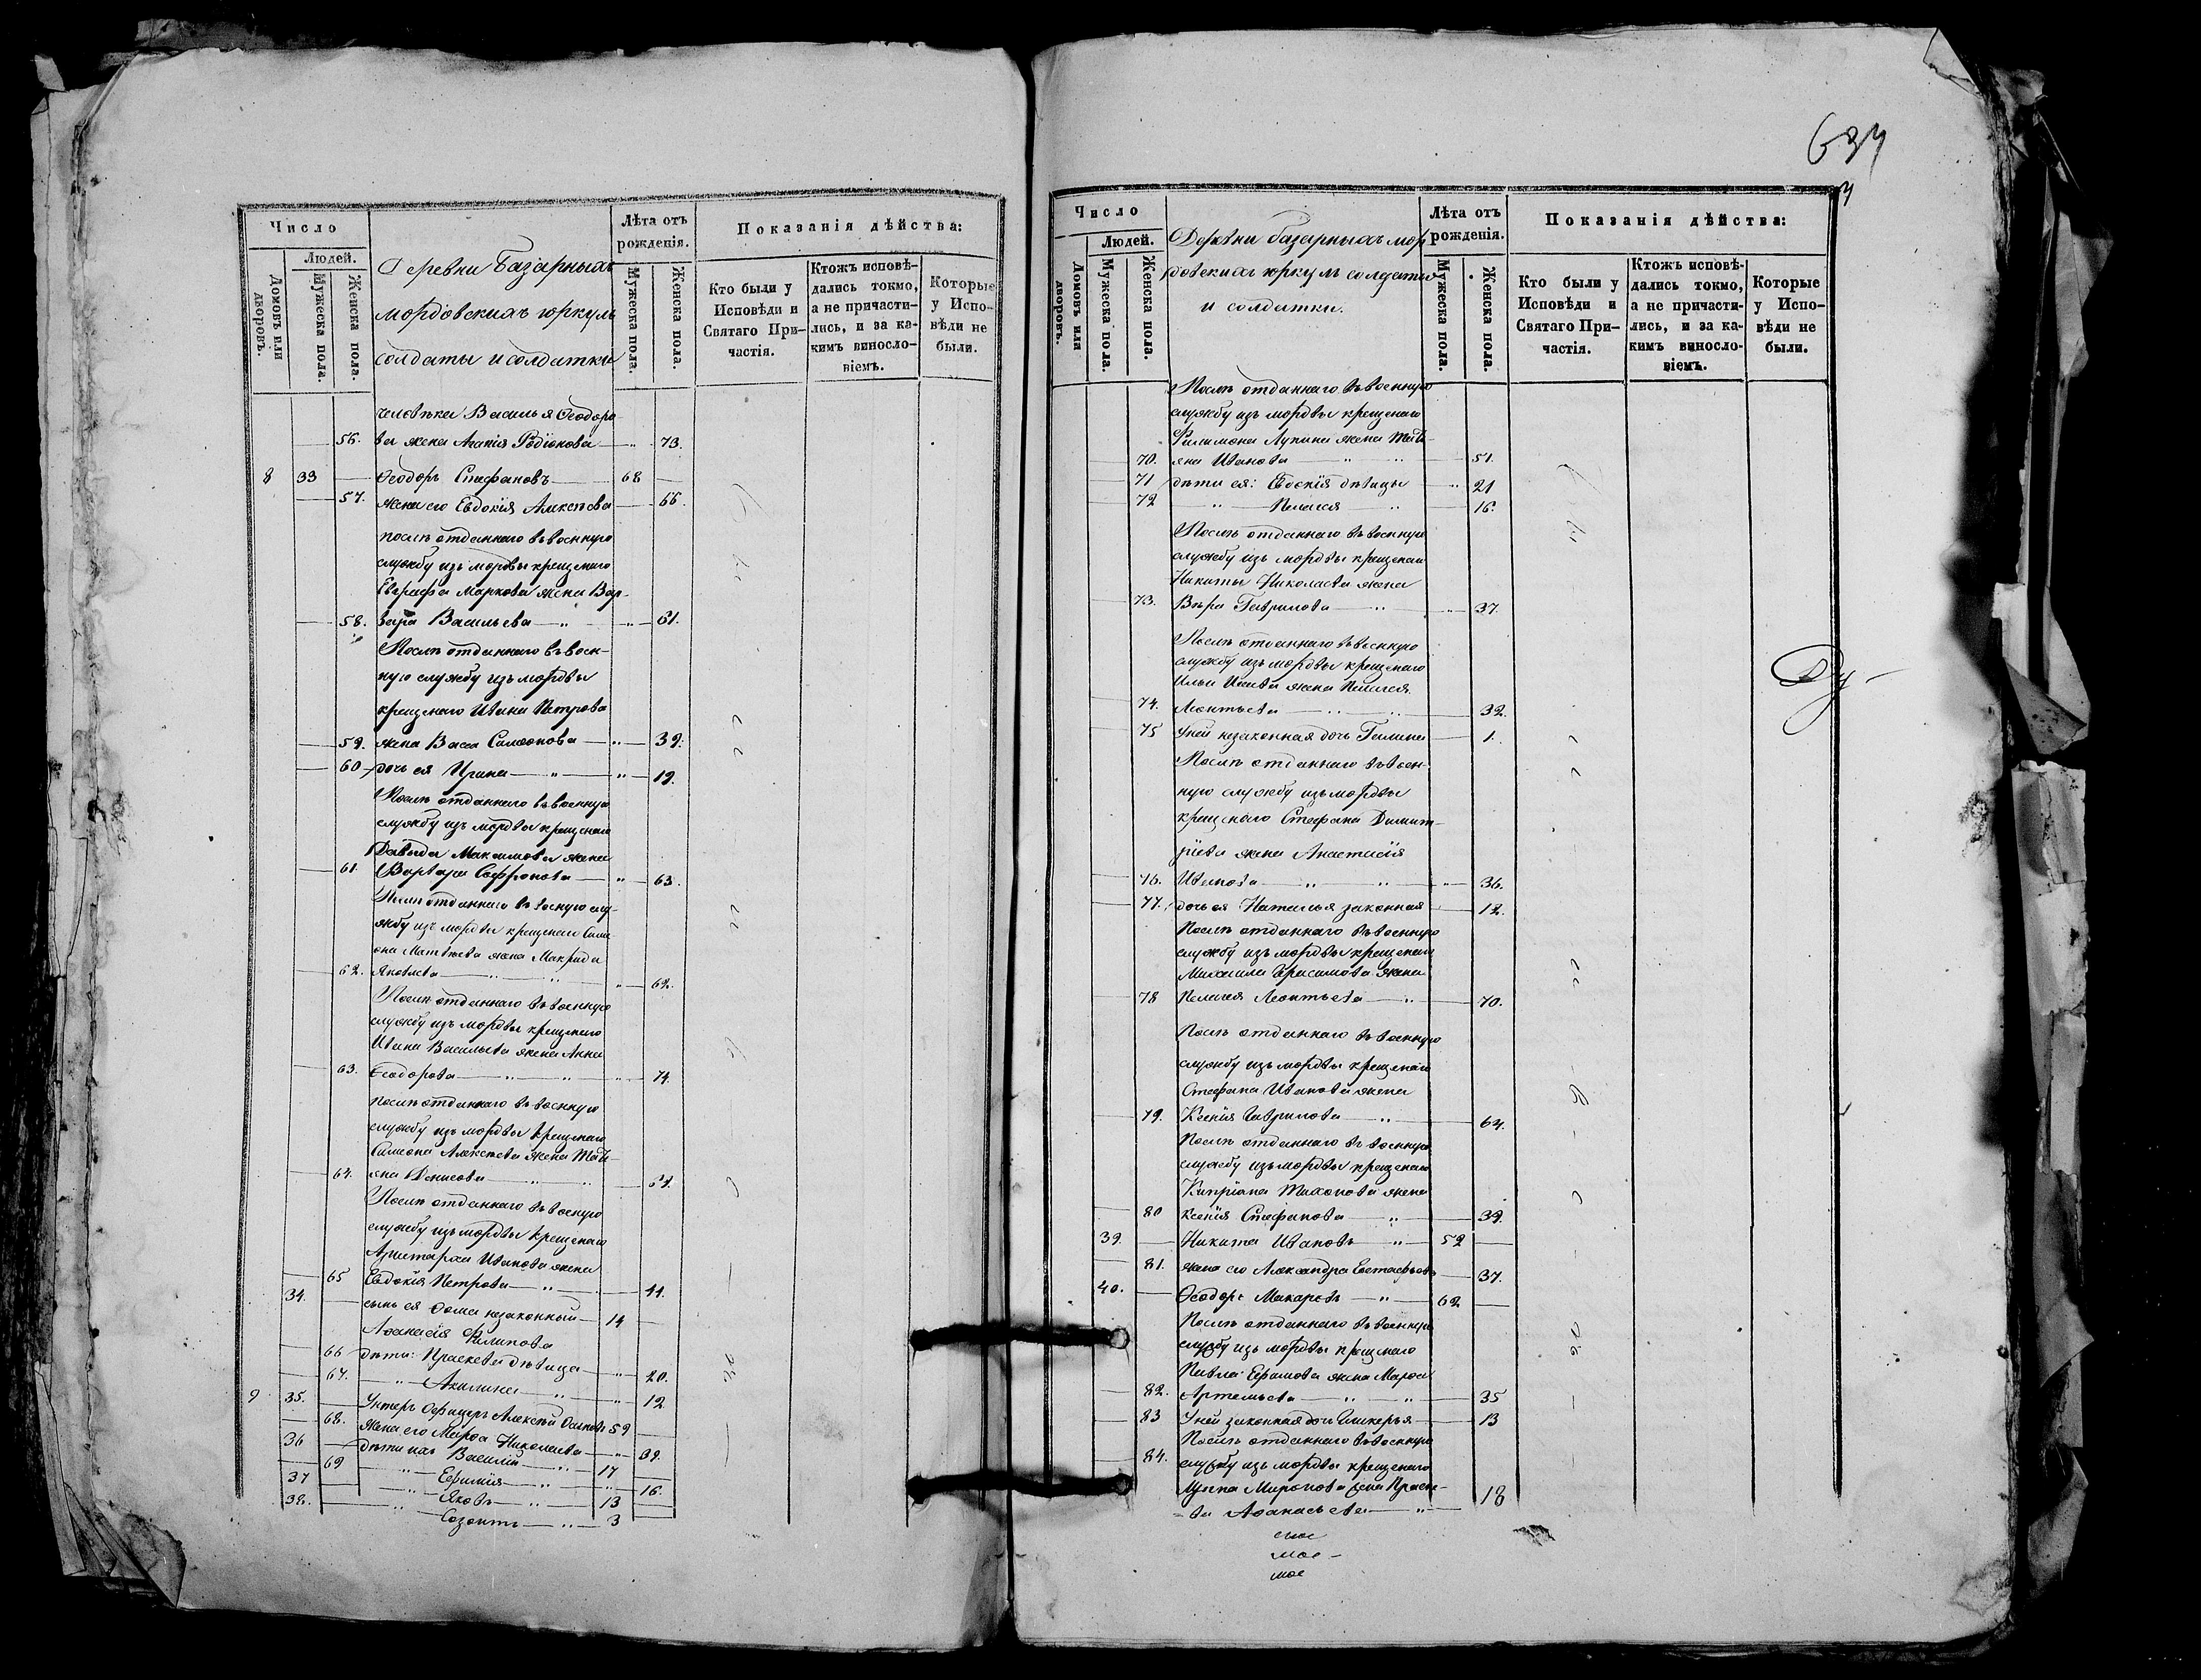 634
Число
Людей.
Домовъ или дворовъ.
Мужеска пола.
Женска пола.
Деревни Базарныхъ
мордовскихъ юркуль
солдаты и солдатки
Лѣта отъ рожденія.
Мужеска пола.
Женска пола.
Показанія дѣйства:
Кто были у Исповѣди и Святаго При-
частія.
Ктожъ исповѣ-
дались токмо,
а не причасти-
лись, и за ка-
кимъ винносло-
віемъ.
Которые
у Испо-
вѣди не
были.
человѣка Василья Ѳеодоро
56. ва жена Агапія Родіонова 73.
8 33 Ѳеодоръ Стефановъ 68
57. жена его Евдокія Алексѣева 66.
послѣ отданнаго въ военную
службу изъ мордвы крещенаго
Евграфа Маркова жена Вар-
58. вара Васильева " " 61.
Послѣ отданнаго въ воен-
ную службу изъ мордвы
крещенаго Ивана Петрова
59. жена Васса Симеонова " 39.
60 дочь ея Ирина " " 19.
Послѣ отданнаго въ военную
службу изъ мордвы крещенаго
Давыда Максимова жена
61. Варвара Софронова " 63.
Послѣ отданнаго въ военую слу-
жбу изъ мордвы крещенаго Симе
она Матвѣева жена Макрида
62. Яковлева " " " 62.
Послѣ отданнаго въ военную
службу изъ мордвы крещенаго
Ивана Васильева жена Анна
63. Ѳеодорова " " " 74.
послѣ отданнаго въ военную
службу изъ мордвы крещенаго
Симеона Алексѣева жена Тать-
64. яна Денисова " "
Послѣ отданнаго въ военую
службу изъ мордвы крещенаго
Аристарха Иванова жена
65 Евдокія Петрова " 44.
34. сынъ ея Ѳома незаконный 14
Аѳанасія Филипова
66 дѣти: Праскевья дѣвица " 20.
67. " Акилина " " 12
9 35. Унтеръ Офицеръ Алексѣй Осиповъ 59
68. Жена его Марѳа Николаева " 39.
36 дѣти ихъ Василій " 17
69 " Ефимія " " 16.
37 " Яковъ " 13
38. " Созонтъ " 3
Число
Людей.
Домовъ или дворовъ.
Мужеска пола.
Женска пола.
Деревни базарныхъ мор
довскихъ юркуль солдаты
и солдатки.
Лѣта отъ рожденія.
Мужеска пола.
Женска пола.
Показанія дѣйства:
Кто были у Исповѣди и Святаго При-
частія.
Ктожъ исповѣ-
дались токмо,
а не причасти-
лись, и за ка-
кимъ винносло-
віемъ.
Которые
у Испо-
вѣди не
были.
Послѣ отданнаго въ военную
службу изъ мордвы крещенаго
Филимона Лупина жена Тать-
70. яна Иванова " " 51.
71 дѣти ея: Евдокія дѣвица " 21
72 " Пелагея " 16.
Послѣ отданнаго въ военную
службу изъ мордвы крещенаго
Никиты Николаева жена
73. Вѣра Гаврилова " " 37.
Послѣ отданнаго въ военную
службу изъ мордвы крещенаго
Ильи Исаева жена Пелагея
74. Леонтьева " " 32.
75 У ней незаконная дочь Галина 1.
Послѣ отданнаго въ воен-
ную службу изъ мордвы
крещенаго Стефана Димит-
ріева жена Анастасія
76. Иванова " " " 36.
77. дочь ея Наталья законная 12.
Послѣ отданнаго въ военную
службу изъ мордвы крещенаго
Михаила Герасимова жена
78 Пелагея Леонтьева " 70.
Послѣ отданнаго въ военную
службу изъ мордвы крещенаго
Стефана Иванова жена
79. Ксенія Гаврилова " 64.
Послѣ отданнаго въ военную
службу изъ мордвы крещенаго
Кипріана Тихонова жена
80 Ксенія Стефанова " 39.
39 Никита Ивановъ " 52
81. жена его Александра Евстафьева 37.
40. Ѳеодоръ Макаровъ " 62
Послѣ отданнаго въ военную
службу изъ мордвы крещенаго
Павла Ефимова жена Марѳа
82. Артемьева " " 35
83 У ней законная дочь Гликерья 13
Послѣ отданнаго въ военную
84. службу изъ мордвы крещенаго
Миронова жена Праске-
ва Аѳанасьева " 18